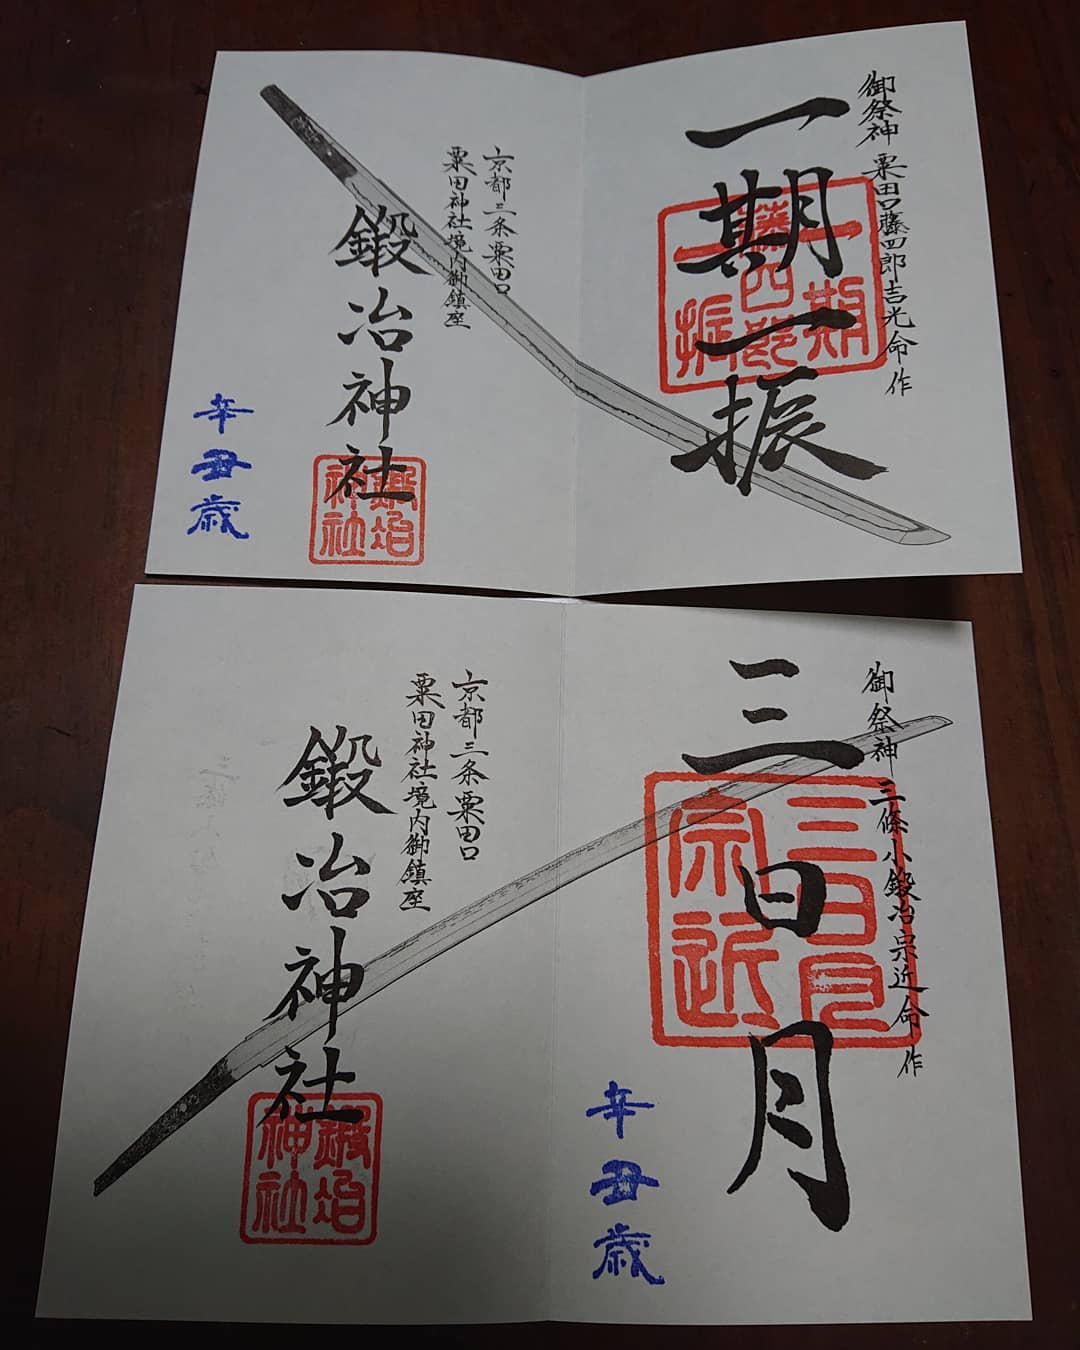 御祭神 粟田口藤四郎吉光命作
一期一振
一期
藤四郎
一振
京都三条粟田口
粟田神社境内御鎮座
鍛冶神社
鍛冶
神社
辛丑歳
御祭神 三條小鍛冶宗近命作
三日月
三日月
宗近
辛丑歳
京都三条粟田口
粟田神社境内御鎮座
鍛冶神社
鍛冶
神社